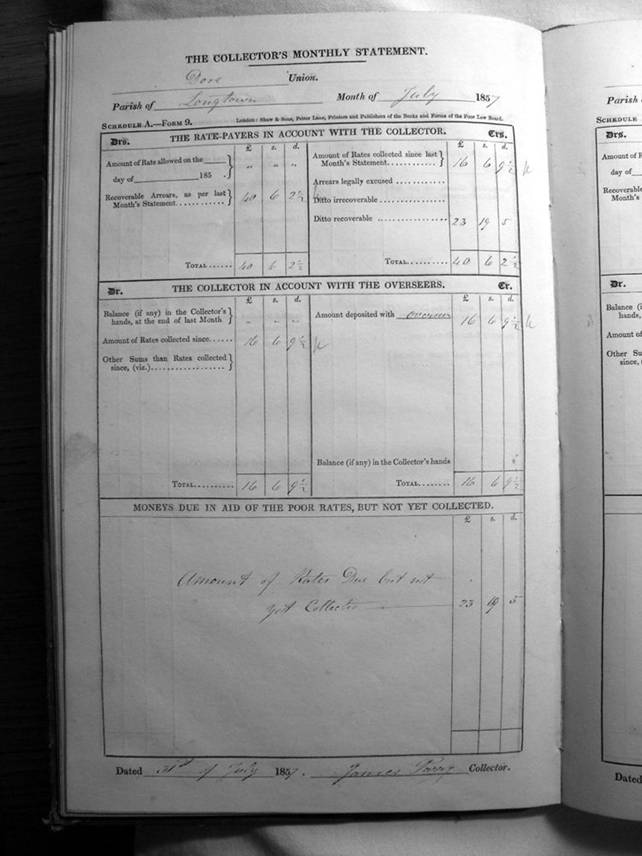 THE COLLECTOR'S MONTHLY STATEMENT.
Dore Union.
Parish of Longtown Month of July 1857
SCHEDULE A.—FORM 9. London: Shaw & Sons, Fetter Lane, Printers and Publishers of the Books and Forms of the Poor Law Board.
Drs. THE RATE-PAYERS IN ACCOUNT WITH THE COLLECTOR. Crs.
£ s. d. £ s. d.
Amount of Rate allowed on the
day of 185 . } " " "
Recoverable Arrears, as per last
Month's Statement } 40 6 2½
Amount of Rates collected since last
Month's Statement } 16 6 9½
Arrears legally excused
Ditto irrecoverable
Ditto recoverable 23 19 5
TOTAL 40 6 2½ TOTAL 40 6 2½
Dr. THE COLLECTOR IN ACCOUNT WITH THE OVERSEERS. Cr.
£ s. d. £ s. d.
Balance (if any) in the Collector's
hands, at the end of last Month } " " "
Amount of Rates collected since 16 6 9½
Other Sums than Rates collected
since, (viz.) }
Amount deposited with overseer 16 6 9½
Balance (if any) in the Collector's hands
TOTAL 16 6 9½ TOTAL 16 6 9½
MONEYS DUE IN AID OF THE POOR RATES, BUT NOT YET COLLECTED.
£ s. d.
Amount of Rates Due but not
yet Collected 23 19 5
Dated 31st of July 1857. James Parry Collector.
Parish of
SCHEDULE
Drs.
Amount of
day of
Recoverable
Month's
Dr.
Balance (i
hands,
Amount of
Other Su
since,
Dated